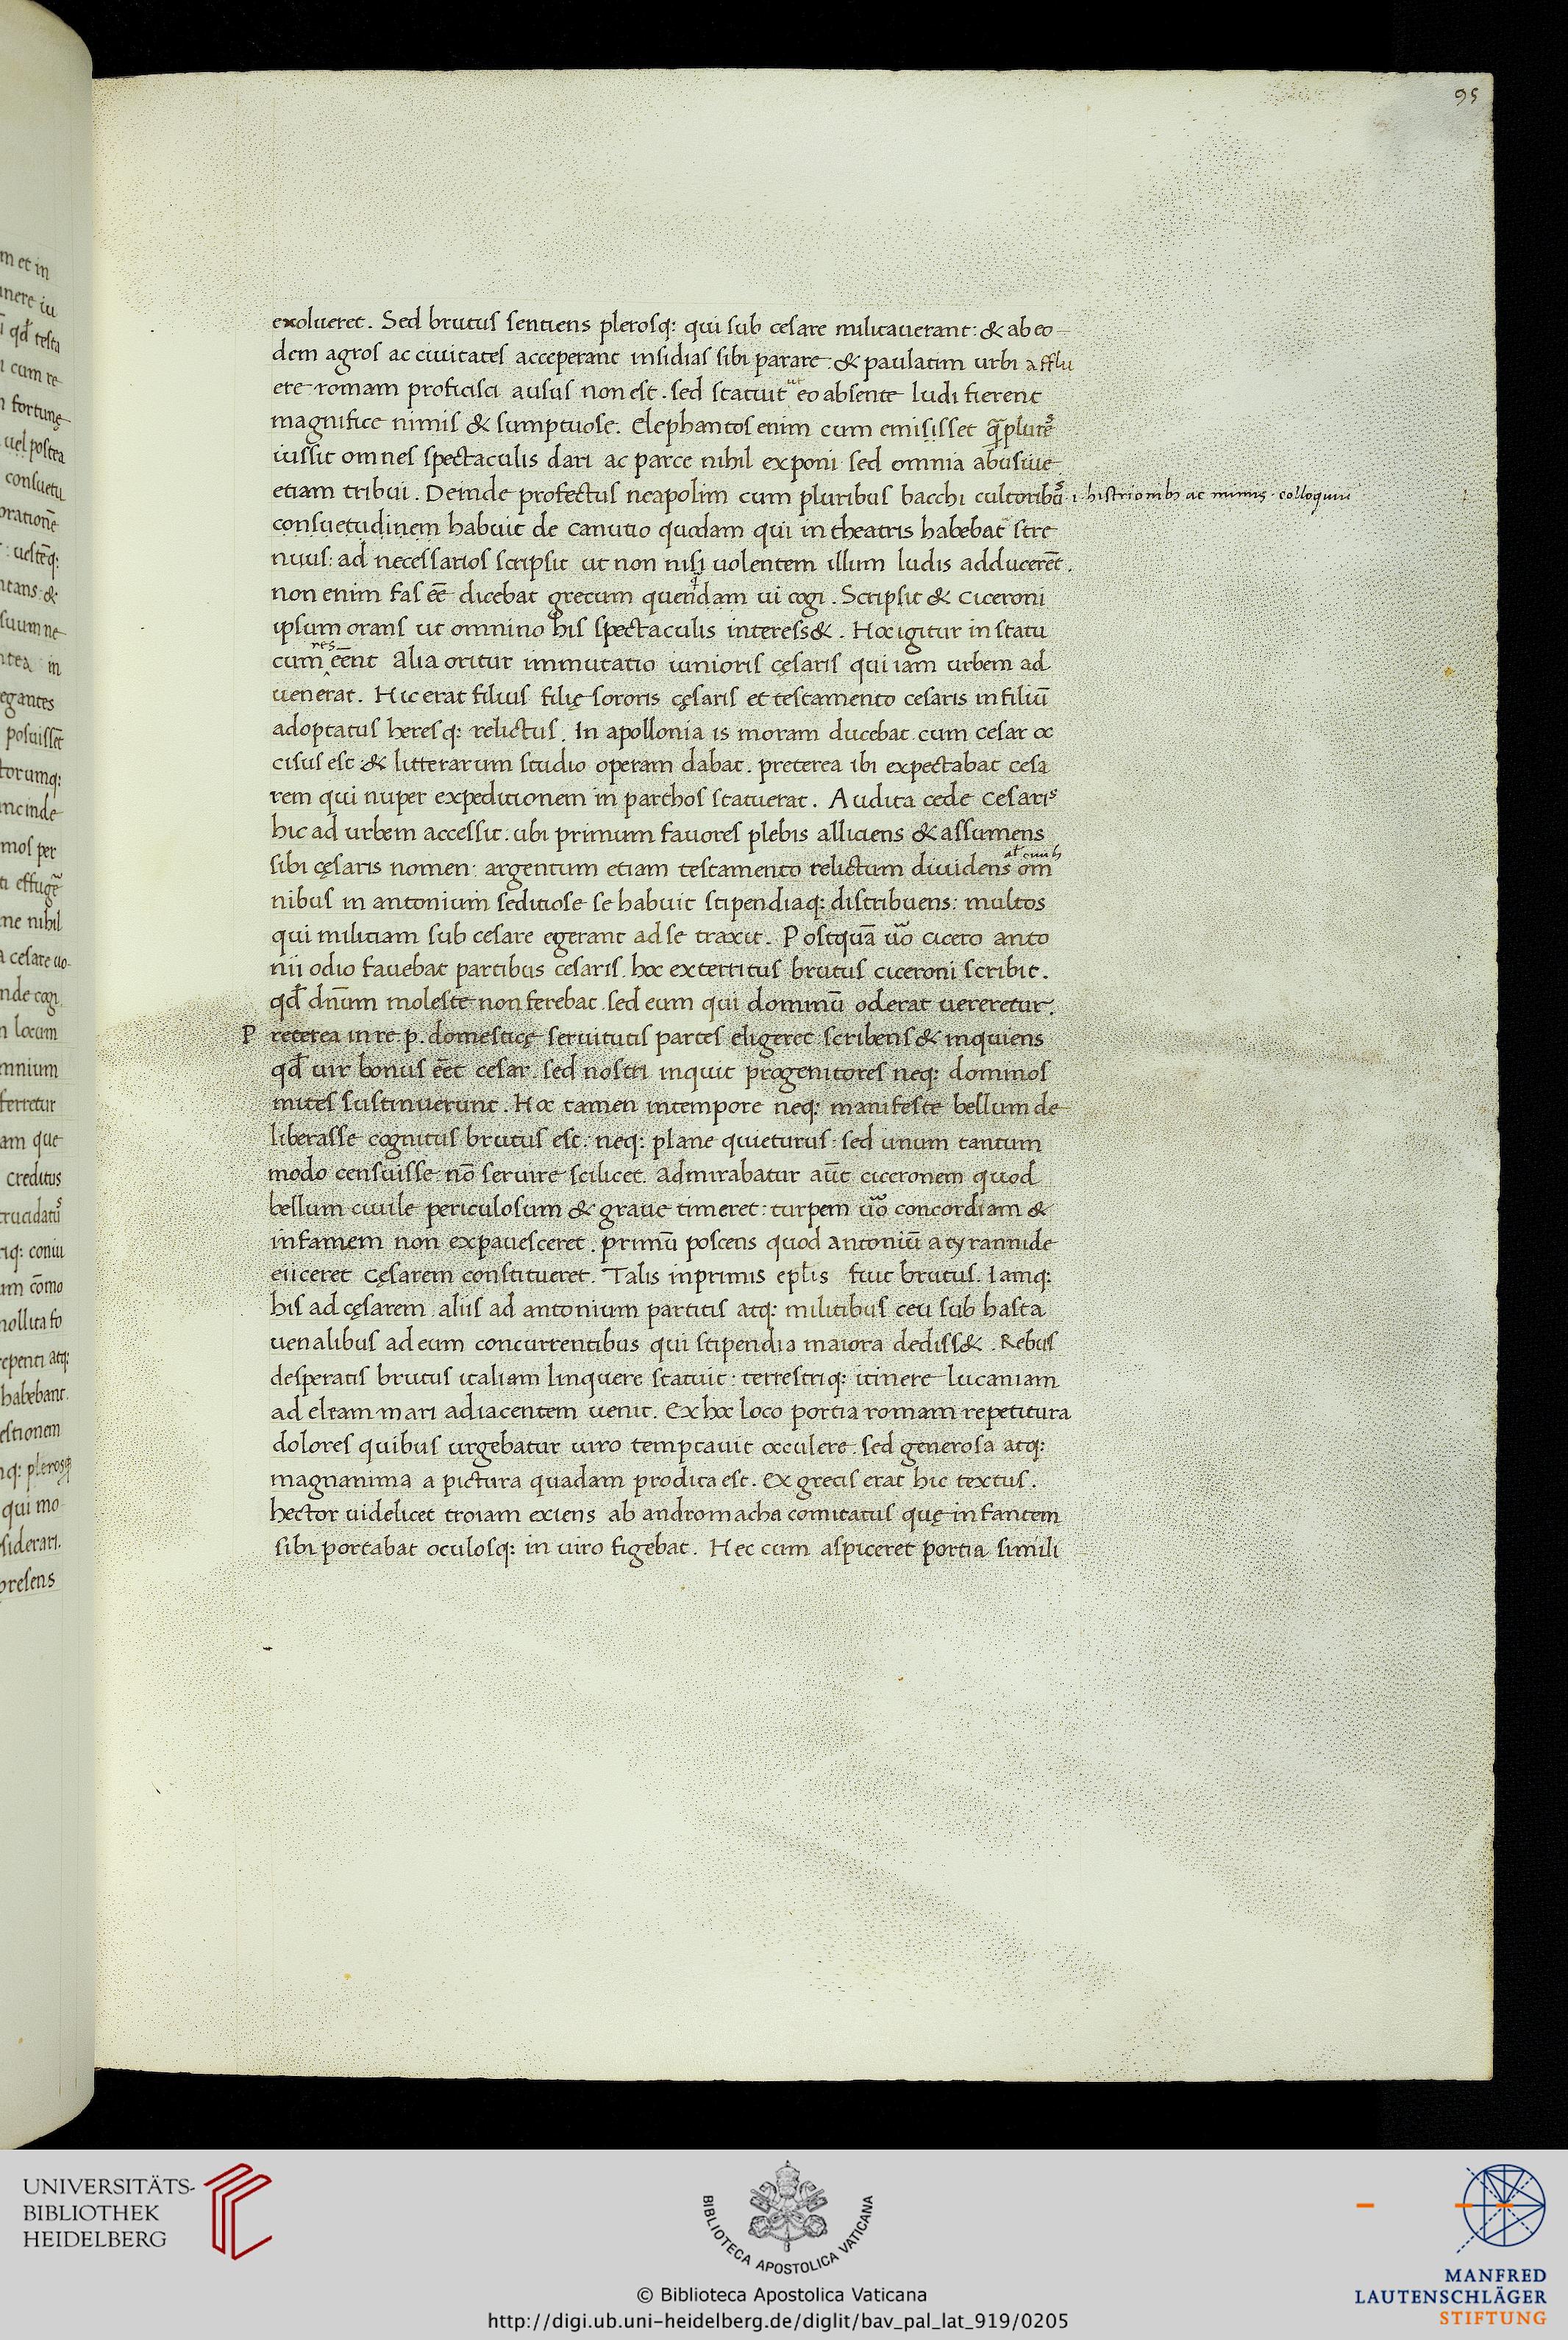 95
exolueret. Sed brutus sentiens plerosq: qui sub cesare militauerant: & ab eo
dem agros ac ciuitates acceperant insidias sibi parare: & paulatim urbi afflu
ere romam proficisci ausus non est. sed statuit ut eo absente ludi fierent
magnifice nimis & sumptuose. Elephantos enim cum emisisset
iussit omnes spectaculis dari ac parce nihil exponi sed omnia abusiue
etiam tribui. Deinde profectus neapolim cum pluribus bacchi cultoribus .i. histrionibus ac mimis. colloquiu
consuetudinem habuit de canutio quodam qui in theatris habebat stre
nuus: ad necessarios scripsit ut non nisi uolentem illum ludis adducerēt.
non enim fas eē dicebat grecum quendam ui cogi. Scripsit & ciceroni
ipsum orans ut omnino his spectaculis interess&. Hoc igitur in statu
cum res eēnt alia oritur immutatio iunioris cęsaris qui iam urbem ad
uenerat. Hic erat filius filię sororis cęsaris et testamento cesaris in filiū
adoptatus heresq: relictus. In apollonia is moram ducebat cum cesar oc
cisus est & litterarum studio operam dabat. preterea ibi expectabat cesa
rem qui nuper expeditionem in parthos statuerat. Audita cede cesaris
hic ad urbem accessit. ubi primum fauores plebis alliciens & assumens
sibi cęsaris nomen: argentum etiam testamento relictum diuidens om
nibus in antonium seditiose se habuit stipendiaq: distribuens: multos
qui militiam sub cesare egerant ad se traxit. Postquā uo cicero anto
nii odio fauebat partibus cesaris. hoc exterritus brutus ciceroni scribit.
qd dnūm moleste non ferebat. sed eum qui dominū oderat uereretur.
Preterea in re .p. domesticę seruitutis partes eligeret scribens & inquiens
qd uir bonus eēt cesar. sed nostri inquit progenitores neq: dominos
mites sustinuerunt. Hoc tamen in tempore neq: manifeste bellum de
liberasse cognitus brutus est. neq: plane quieturus: sed unum tantum
modo censuisse nō seruire scilicet. admirabatur aūt ciceronem quod
bellum ciuile periculosum & graue timeret: turpem uo concordiam &
infamem non expauesceret. primū poscens quod antoniū a tyrannide
eiiceret cęsarem constitueret. Talis in primis eplis fuit brutus. Iamq:
his ad cęsarem aliis ad antonium partitis atq: militibus ceu sub hasta
uenalibus ad eum concurrentibus qui stipendia maiora dediss&. Rebus
desperatis brutus italiam linquere statuit: terrestriq: itinere lucaniam
ad eleam mari adiacentem uenit. Ex hoc loco portia romam repetitura
dolores quibus urgebatur uiro temptauit occulere. sed generosa atq:
magnanima a pictura quadam prodita est. Ex grecis erat hic textus.
hector uidelicet troiam exiens ab andromacha comitatus quę infantem
sibi portabat oculosq: in uiro figebat. Hec cum aspiceret portia simili
UNIVERSITÄTS-
BIBLIOTHEK
HEIDELBERG
BIBLIOTECA APOSTOLICA VATICANA
© Biblioteca Apostolica Vaticana
http://digi.ub.uni-heidelberg.de/diglit/bav_pal_lat_919/0205
MANFRED
LAUTENSCHLÄGER
STIFTUNG